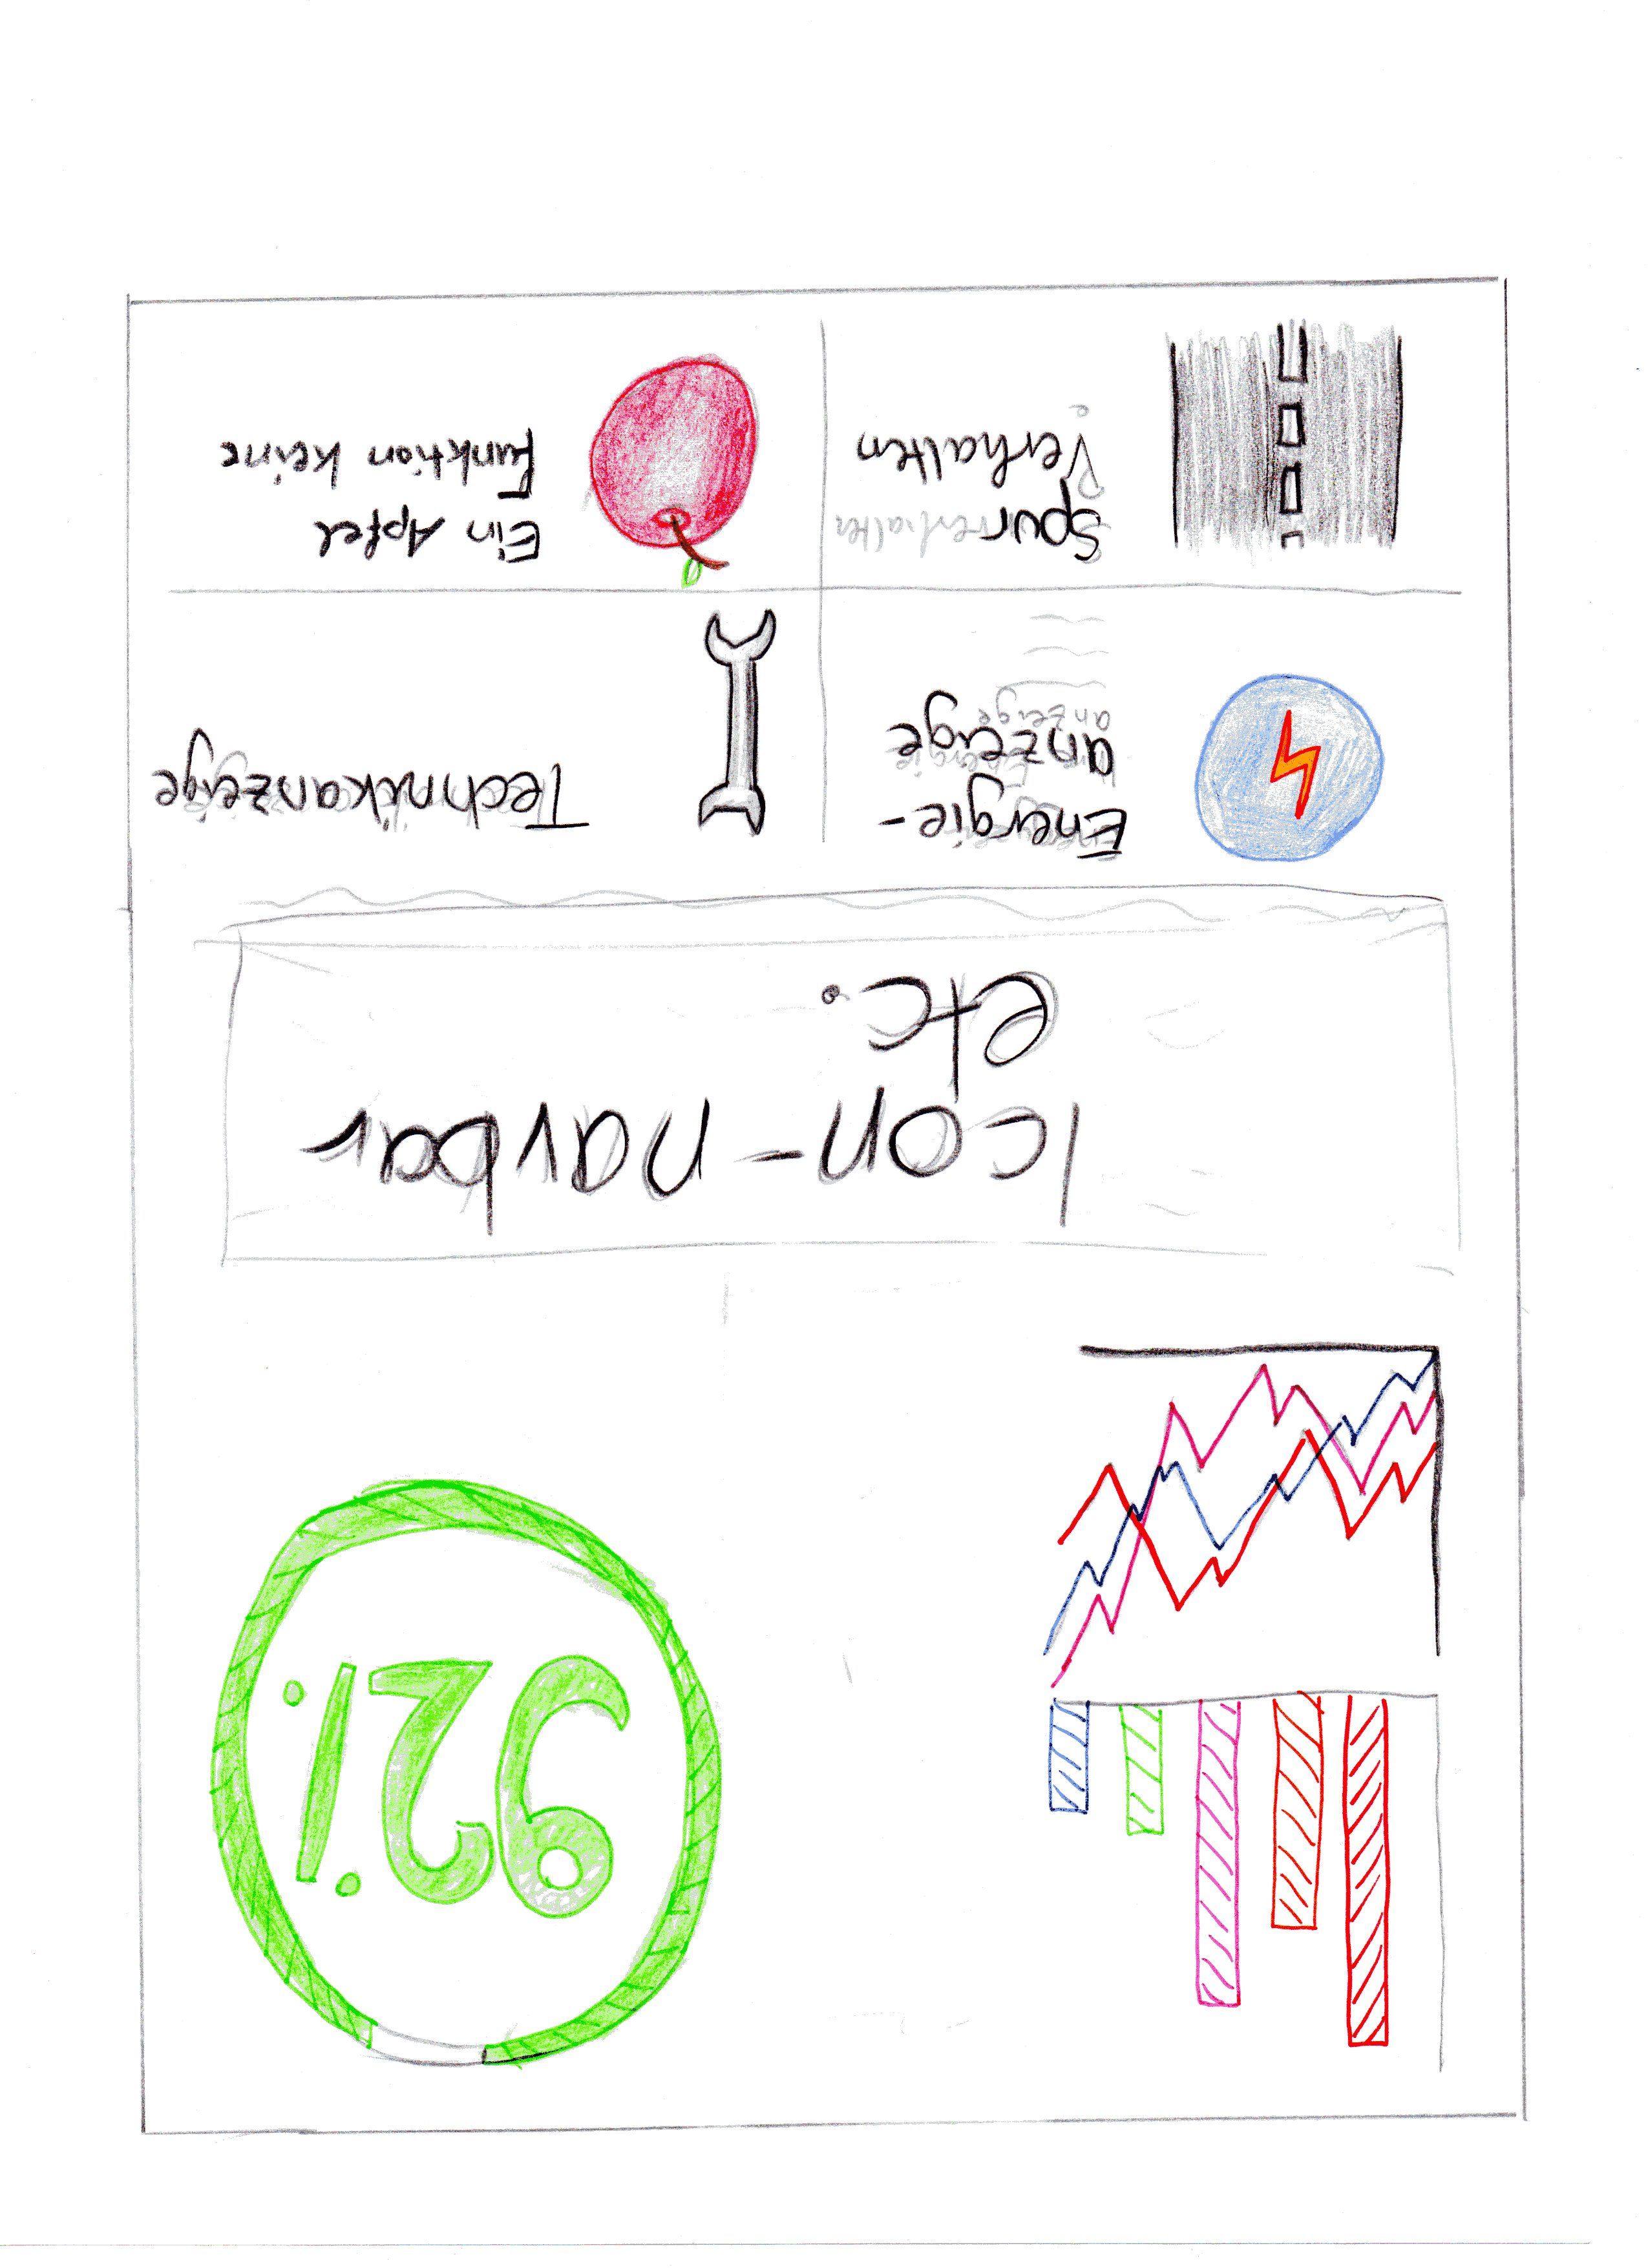 92%
Icon-navbar
etc.
Energie-
anzeige
anzeige
Technikanzeige
Spurverhalten
Verhalten
Ein Apfel
Funktion keine